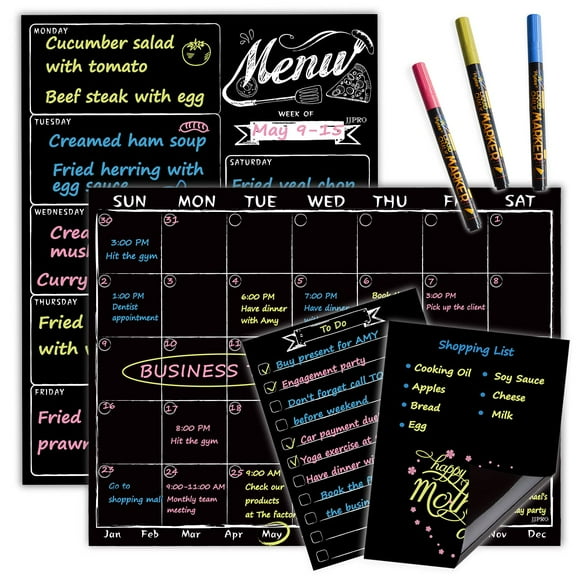 MONDAY
Cucumber salad
with tomato
Beef steak with egg
TUESDAY
Creamed ham soup
Fried herring with
egg sauce
WEDNESDAY
Curry
THURSDAY
Fried
FRIDAY
Fried
Menu
WEEK OF
JJPRO
May 9-15
SATURDAY
Fried veal chop
MARKER
MARKER
MARKER
SUN MON TUE WED THU SAT
30 31 1
3:00 PM
Hit the gym
2 3 4 5 6 7 8
1:00 PM
Dentist
appointment
6:00 PM
Have dinner
with Amy
7:00 PM
Have dinner
3:00 PM
Pick up the client
9 10 11
BUSINESS
16 17 18
8:00 PM
Hit the gym
23 24 25
Go to
shopping mal
9:00-11:00 AM
Monthly team
meeting
9:00 AM
Check our
products
at The factor
Jan Feb Mar Apr May Nov Dec
To Do
Buy present for AMY
Engagement party
Don't forget call TO
before weekend
Car payment due
Yoga exercise at
Have dinner wi
Book the
the busin
Shopping List
Cooking Oil
Apples
Bread
Egg
Soy Sauce
Cheese
Milk
happy
JJPRO